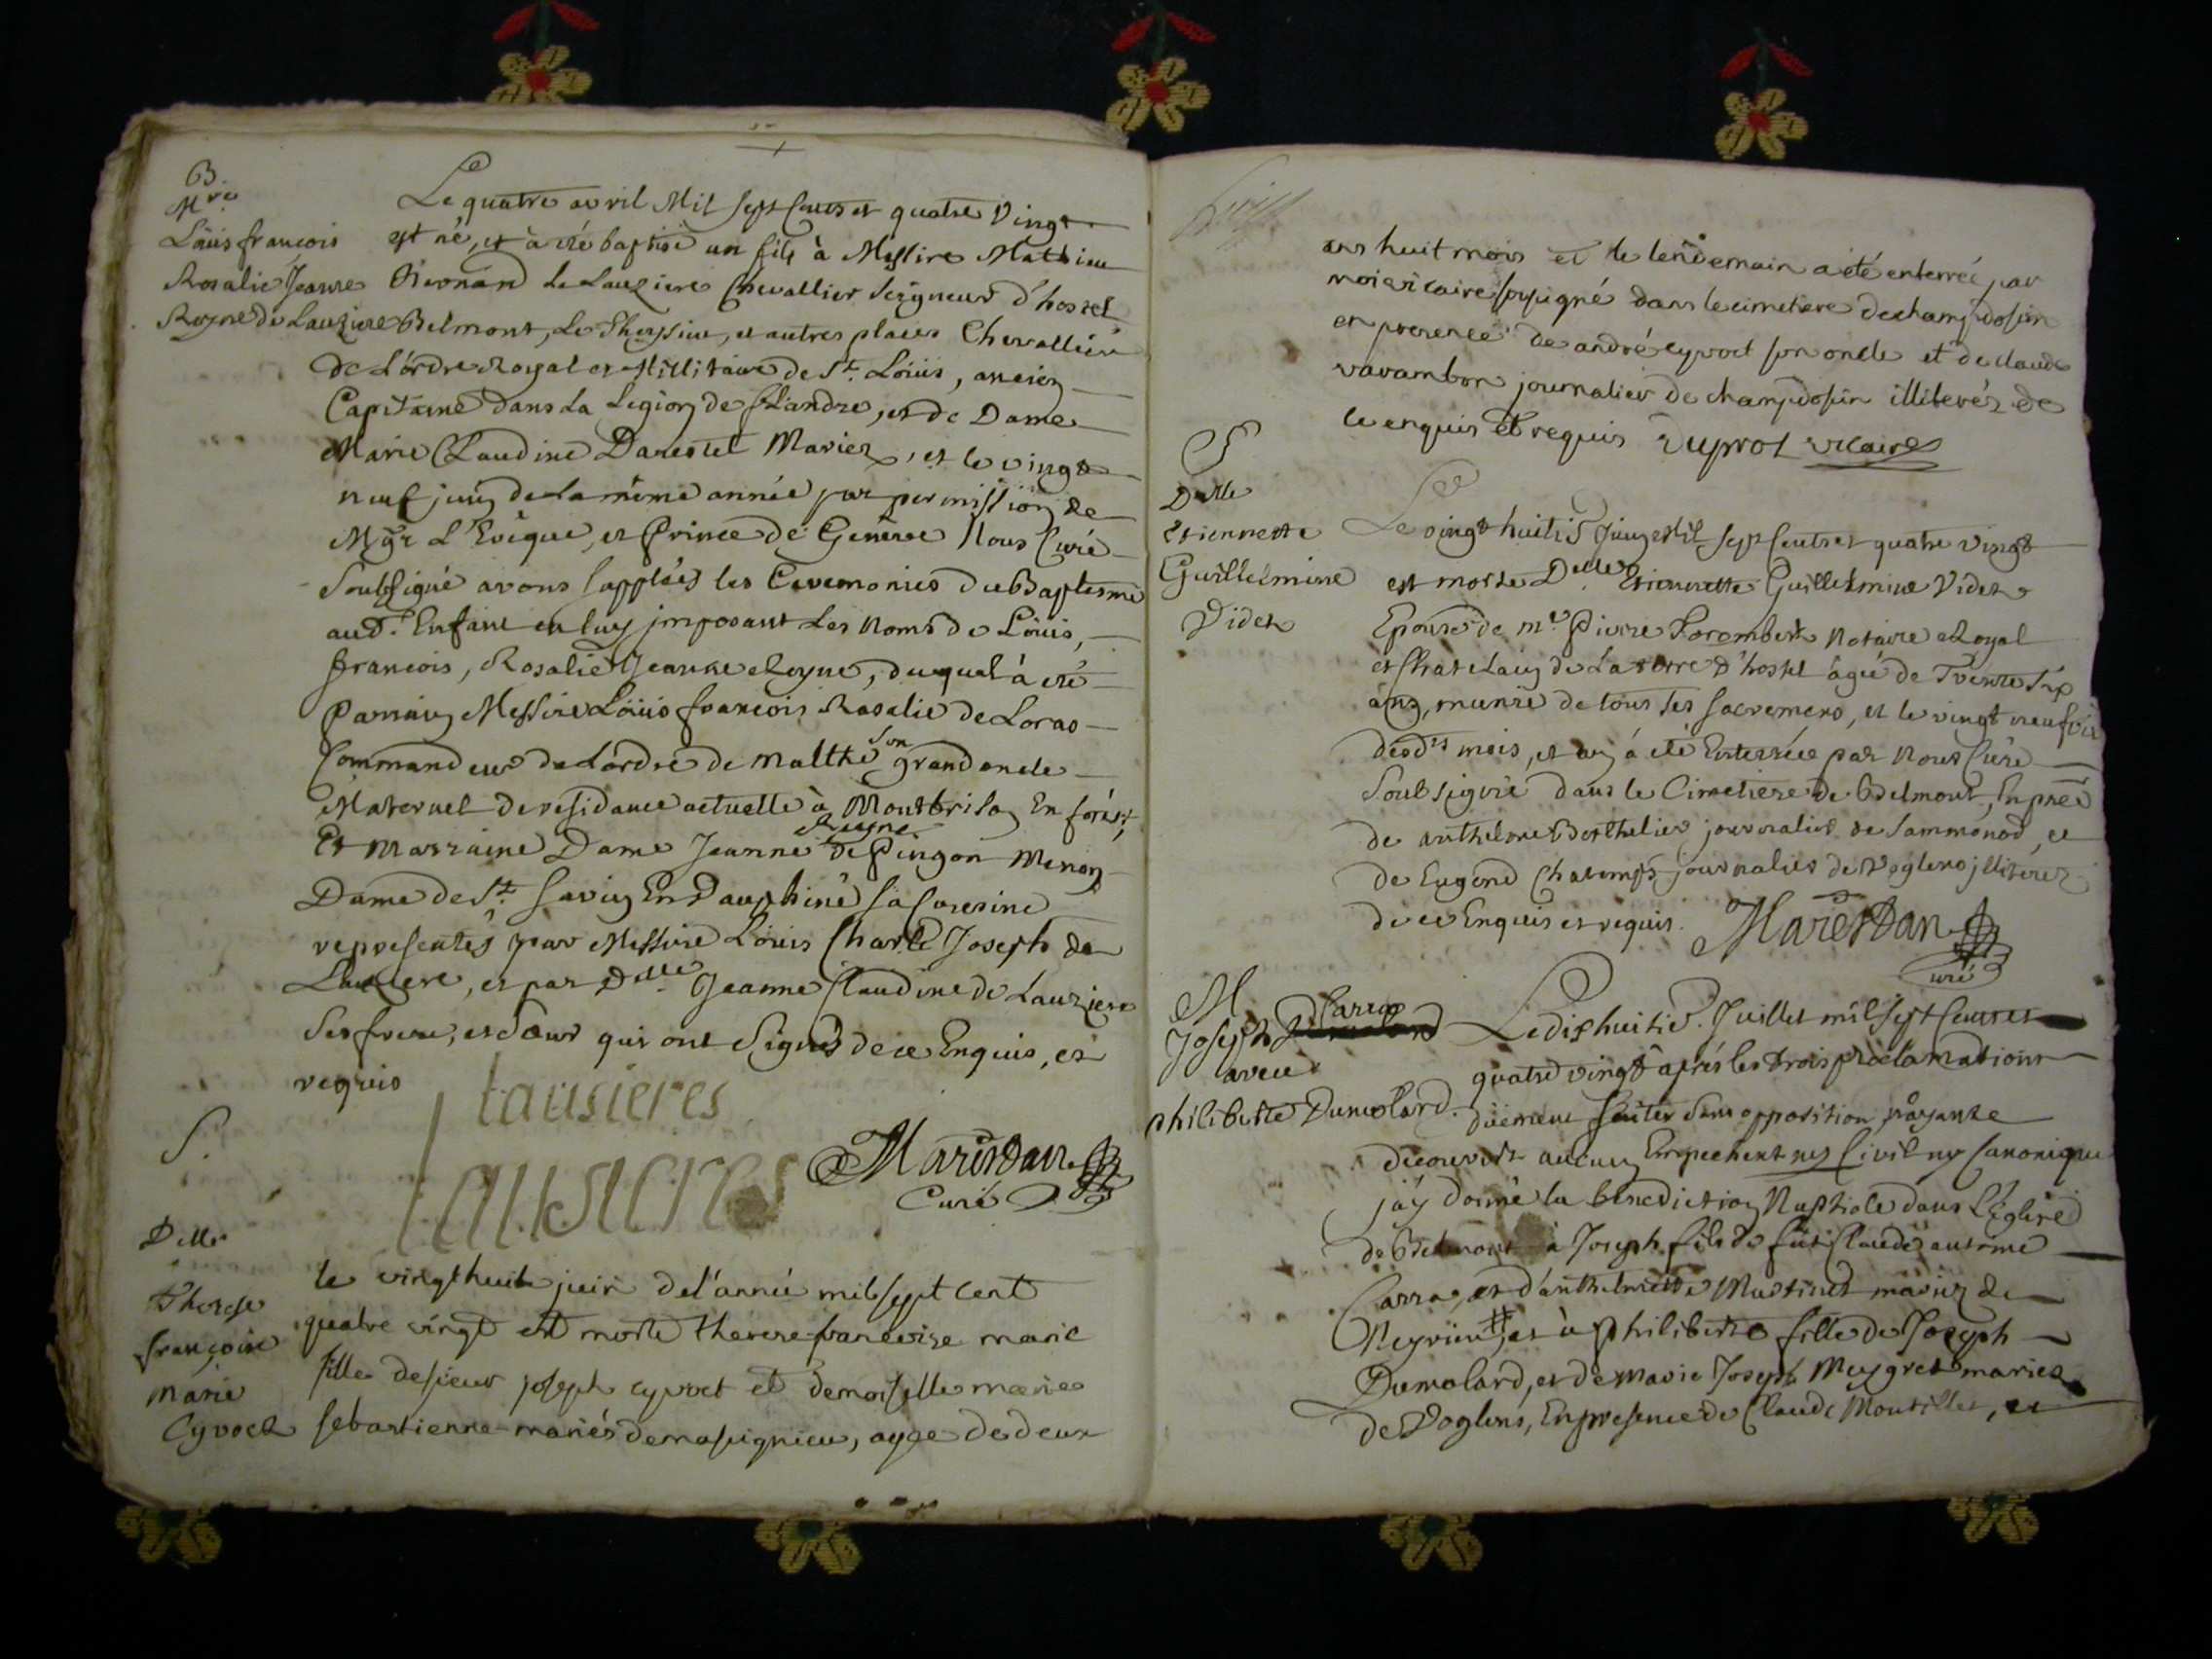 B.
Mre
Loüis françois
Rosalie Jeanne
Reyne de Lauziere
Le quatre avril Mil sept Cents et quatre Vingt
est né, et à été baptisé un fils à Messire Mathieu
de Lauziere Chevallier Seigneur d'hostel
Belmont, Le Theysieu, et autres places Chevallier
de L'ordre Royal et Millitaire de St. Loüis, ancien
Capitaine dans La Legion de flandre, et de Dame
Marie Claudine Darestel Mariez, et le vingt
neuf juin de La même année par permission de
Mgr L'Evêque, et Prince de Genêve Nous Curé
Soubsigné avons supplées les Ceremonies du Baptesme
aud. Enfant en luy jmposant Les Noms de Loüis,
françois, Rosalie Jeanne Reyne, duquel à été
Parrain Messire Loüis françois Rosalie de Loras
Commandeur de L'ordre de Malthe son grand oncle
Maternel de residance actuelle à Montbrison En forest,
Et Marraine Dame Jeanne Reyne de Pingon Menon
Dame de St. Savin En Dauphiné sa Cousine
representés par Messire Loüis Charle Joseph de
Lauziere, et par Dlle Jeanne Claudine de Lauziere
Ses frere, et sœur qui ont Signés de ce Enquis, et
requis
lausieres
Lausieres
Marestan
Curé
S.
Delle
Therese
françoise
Marie
Cyvoct
le vingt huit juin de l'année mil sept cent
quatre vingt est morte therese francoise marie
fille de sieur joseph cyvoct et demoiselle marie
sebastienne mariés de massignieu, agée de deux
ans huit mois et le lendemain a été enterrée par
moi vicaire soussigné dans le cimetiere de champdosin
en presence de andré cyvoct son oncle et de claude
varambon journalier de champdosin illiterés de
ce enquis et requis Duprot vicaire
S
Delle
Etiennette
Guillelmine
Videt
Le vingt huitie. Juin Mil sept Cents et quatre vingt
est morte Delle Etiennette Guillelmine Videt
Epouse de me Pierre Forembert Notaire Royal
et Chatelain de La terre d'hostel âgée de Trente six
ans, munie de tous ses sacremens, et le vingt neufvie
desdts mois, et an à été Enterrée par Nous Curé
Soubsigné dans le Cimetiere de Belmont, En prèe
de anthelme Berthelier journalier de Sammonod, et
de Eugend Chatemps journalier de Voglens jlliterez
de ce Enquis et requis. Marestan
curé
M
Joseph Carra
avec
philiberte Dumolard.
Le dix huitie. Juillet mil sept Cents et
quatre vingt après les trois proclamations
düement faites sans opposition n'ayant
decouvert aucun Empechement ny Civil ny Canonique
j'ay donné la benediction Nuptiale dans L'église
de Belmont à Joseph fils de fut Claude antoine
Carra, et d'anthelmette Martinet mariez de
Neyrieu, et à philiberte fille de Joseph
Dumolard, et de Marie Joseph Meygret mariez
de Voglens, En presence de Claude Montillet, et